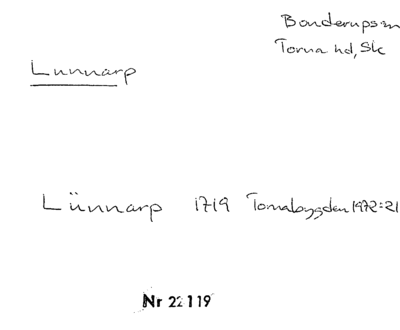 Bonderups sn
Torna hd, Sk
Lunnarp
Lünnarp 1719 Tornabygden 1972:21
Nr 22119